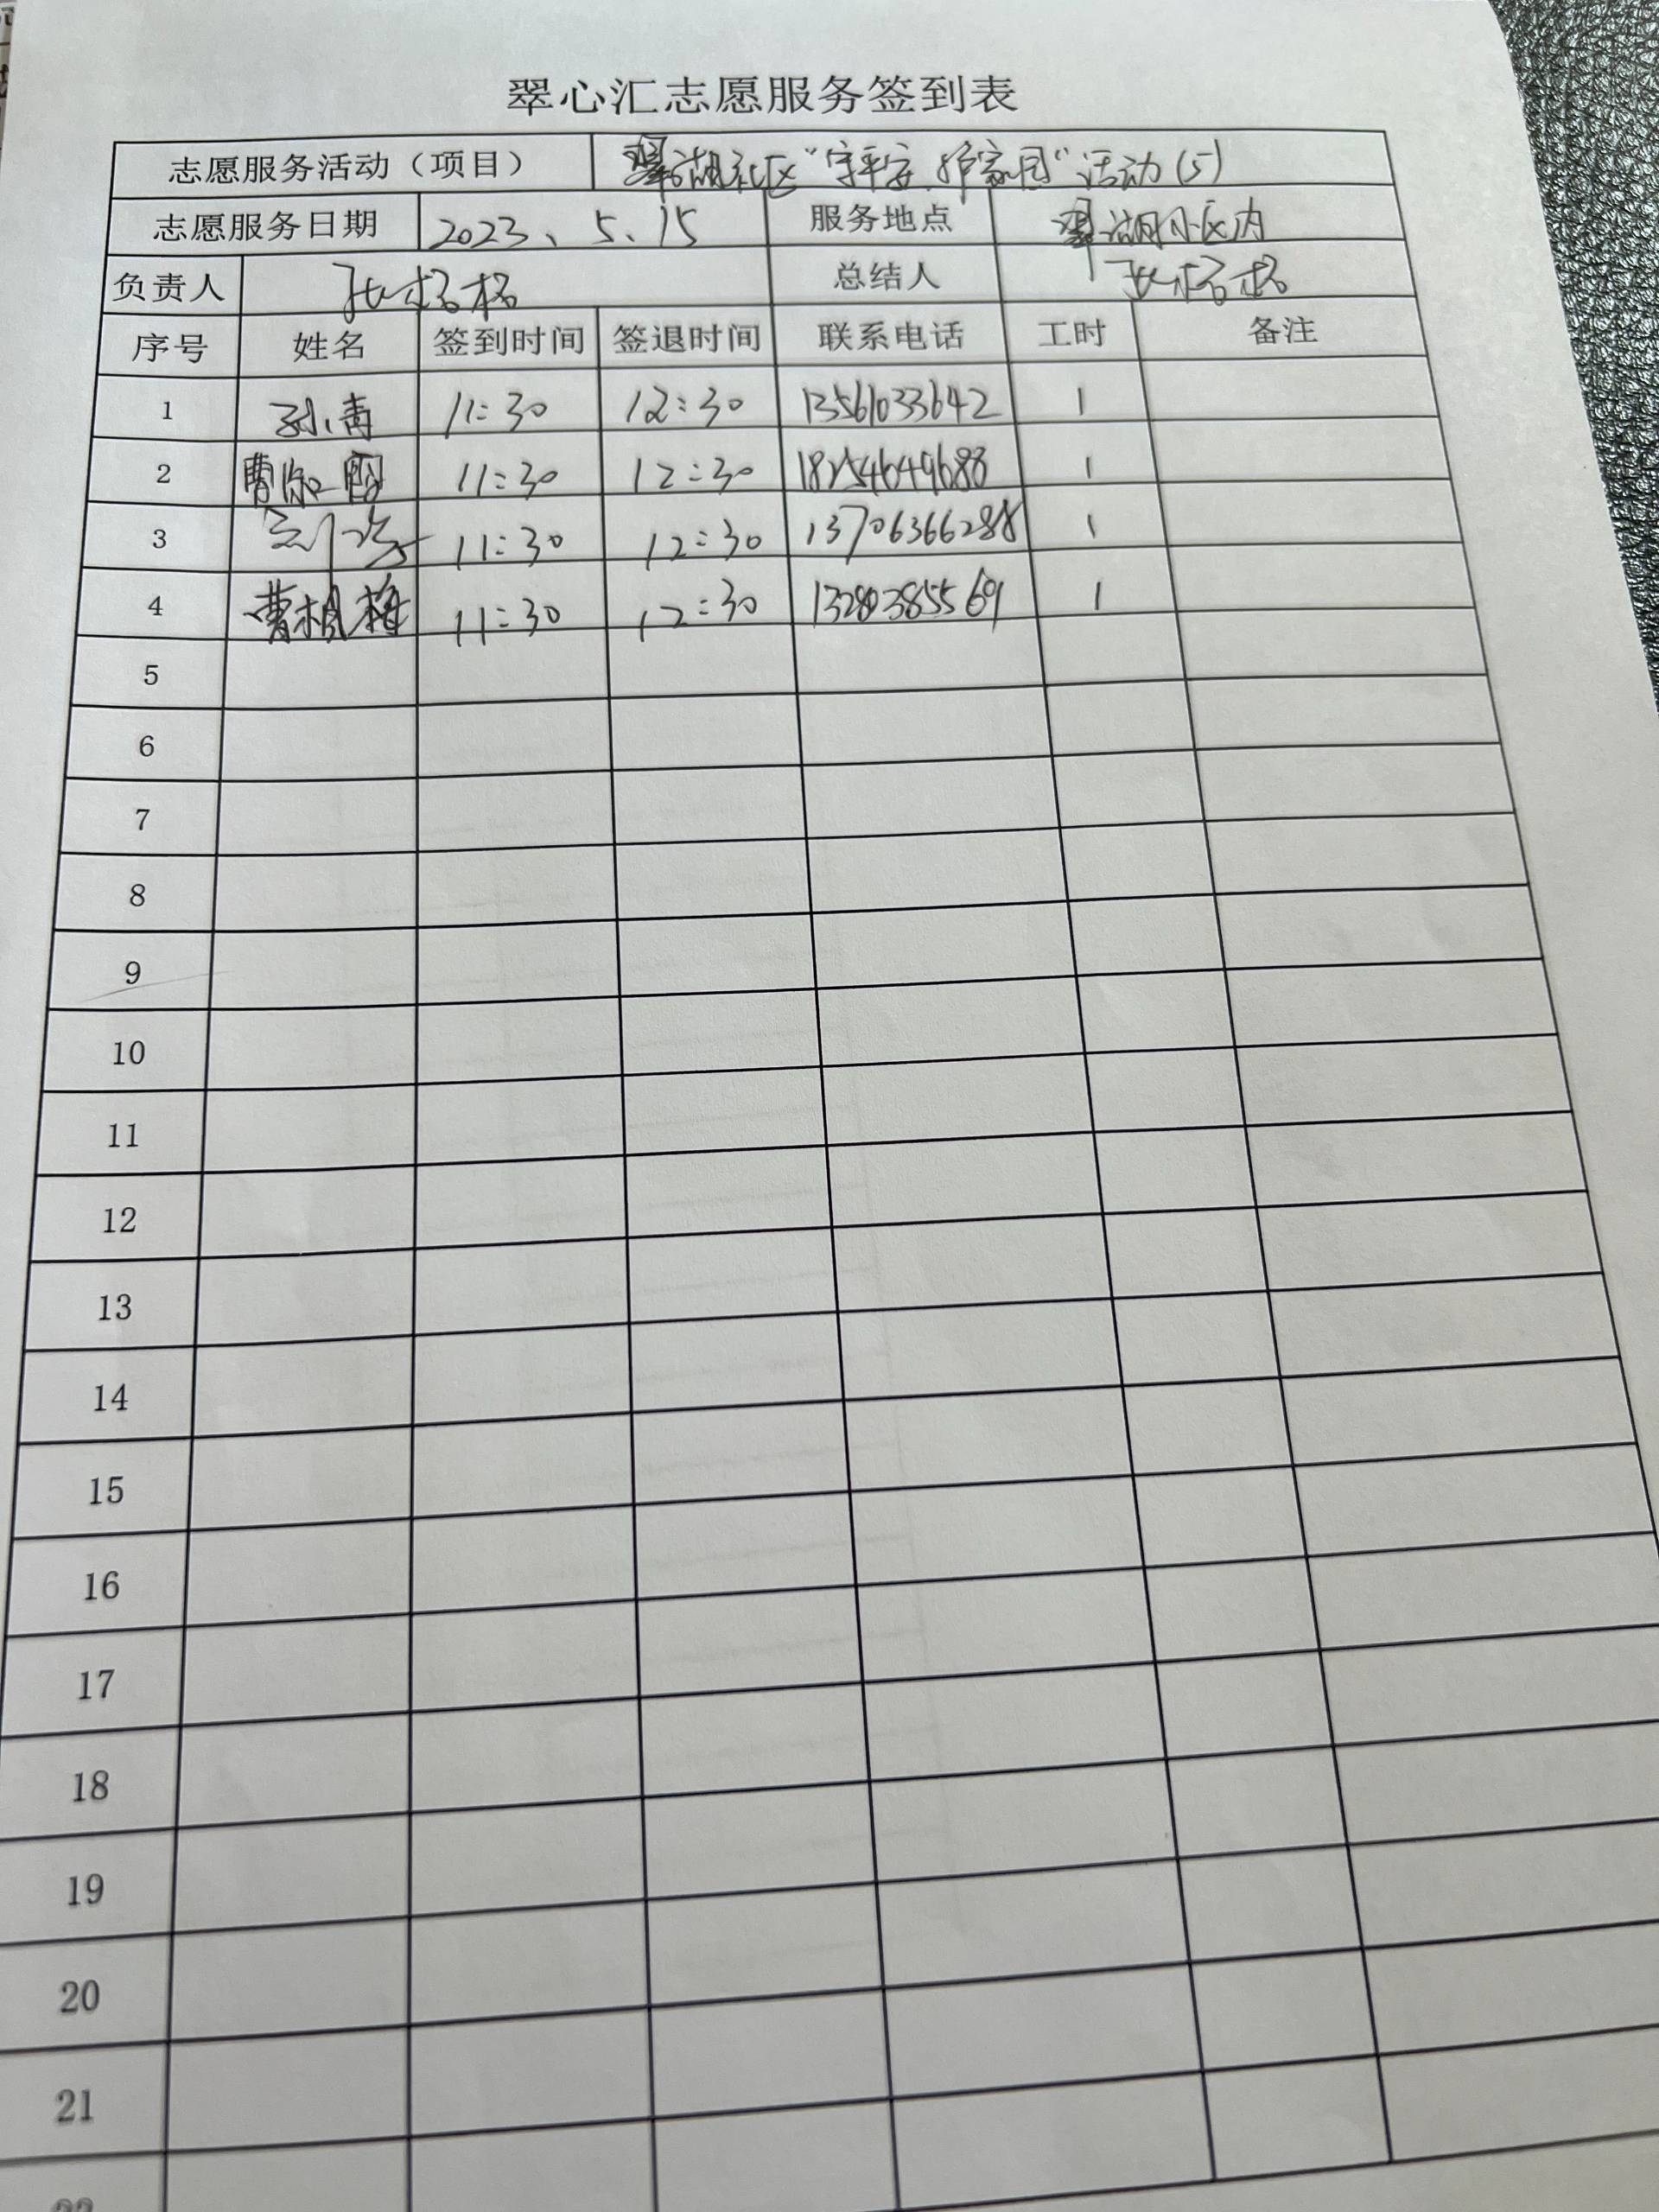 翠心汇志愿服务签到表
志愿服务活动（项目） 翠湖社区“守平安.护家园”活动(5)
志愿服务日期 2023、5、15 服务地点 翠湖小区内
负责人 张格格 总结人 张格格
序号 姓名 签到时间 签退时间 联系电话 工时 备注
1 孙青 11:30 12:30 13561033642 1
2 11:30 12:30 18254649688 1
3 11:30 12:30 13706366288 1
4 11:30 12:30 1
5
6
7
8
9
10
11
12
13
14
15
16
17
18
19
20
21